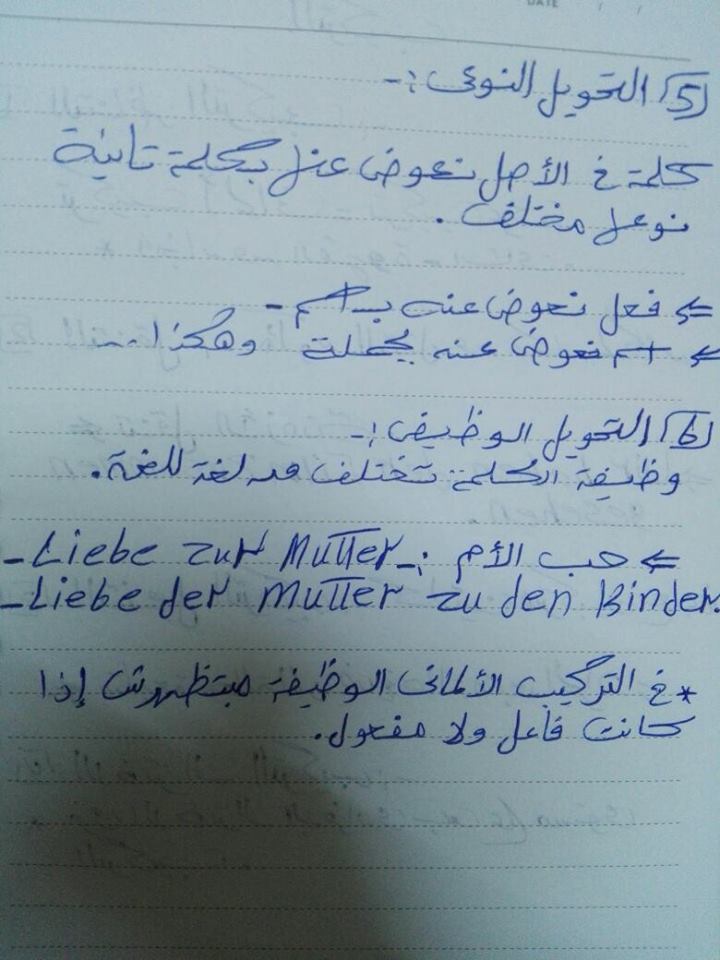 DATE / /
5) التحويل النوعى :-
كلمة فى الأصل نعوض عنها بكلمة تانية
نوعها مختلف .
⇐ فعل نعوض عنه بـ اسم -
⇐ اسم نعوض عنه بجملة وهكذا ...
6) التحويل الوظيفى :-
وظيفة الكلمة تختلف من لغة للغة .
⇐ حب الأم :- Liebe zur Mutter -
- Liebe der Mutter zu den Kinder.
* فى التركيب الألمانى الوظيفة مبتظهرش إذا
كانت فاعل ولا مفعول .